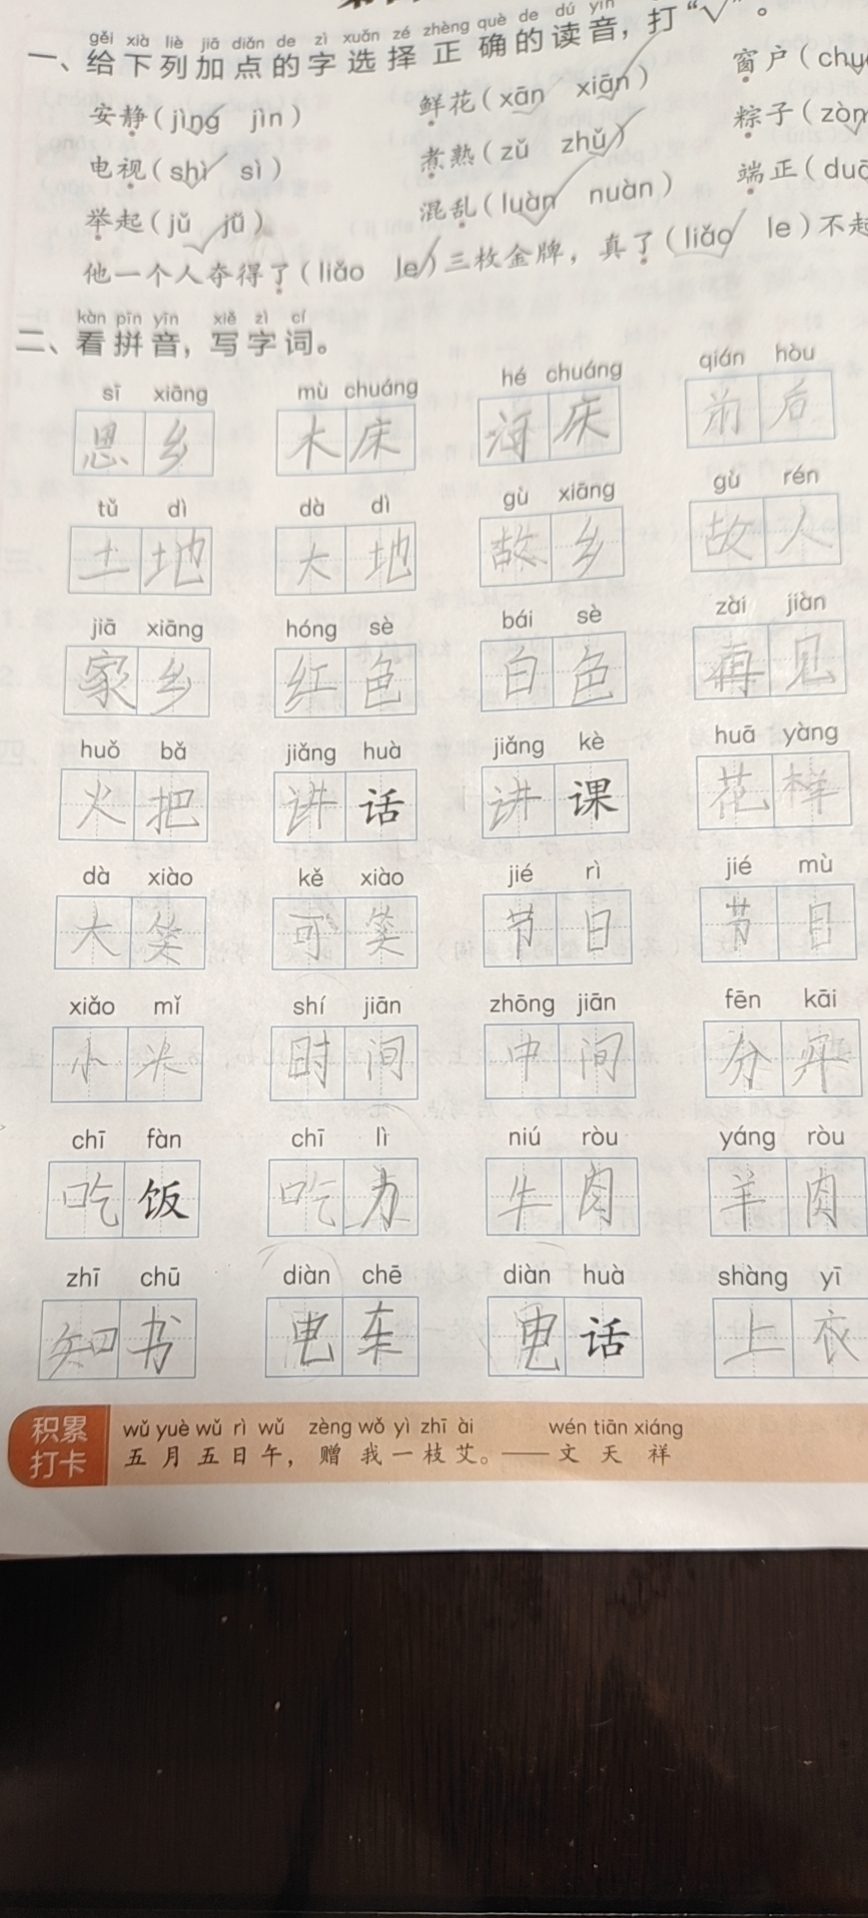 gěi xià liè jiā diǎn de zì xuǎn zé zhèng què de dú yīn
一、给下列加点的字选择正确的读音，打“√”。
安静（jìng jìn） 鲜花（xān xiān） 窗户（chu
电视（shì sì） 煮熟（zǔ zhǔ） 粽子（zòn
举起（jǔ jǚ） 混乱（luàn nuàn） 端正（duō
他一个人夺得了（liǎo le）三枚金牌，真了（liǎo le）不起
kàn pīn yīn xiě zì cí
二、看拼音，写字词。
sī xiāng mù chuáng hé chuáng qián hòu
思乡 木床 河床 前后
tǔ dì dà dì gù xiāng gù rén
土地 大地 故乡 故人
jiā xiāng hóng sè bái sè zài jiàn
家乡 红色 白色 再见
huǒ bǎ jiǎng huà jiǎng kè huā yàng
火把 讲话 讲课 花样
dà xiào kě xiào jié rì jié mù
大笑 可笑 节日 节目
xiǎo mǐ shí jiān zhōng jiān fēn kāi
小米 时间 中间 分开
chī fàn chī lì niú ròu yáng ròu
吃饭 吃力 牛肉 羊肉
zhī chū diàn chē diàn huà shàng yī
知书 电车 电话 上衣
积累打卡
wǔ yuè wǔ rì wǔ zèng wǒ yì zhī ài wén tiān xiáng
五月五日午，赠我一枝艾。——文天祥